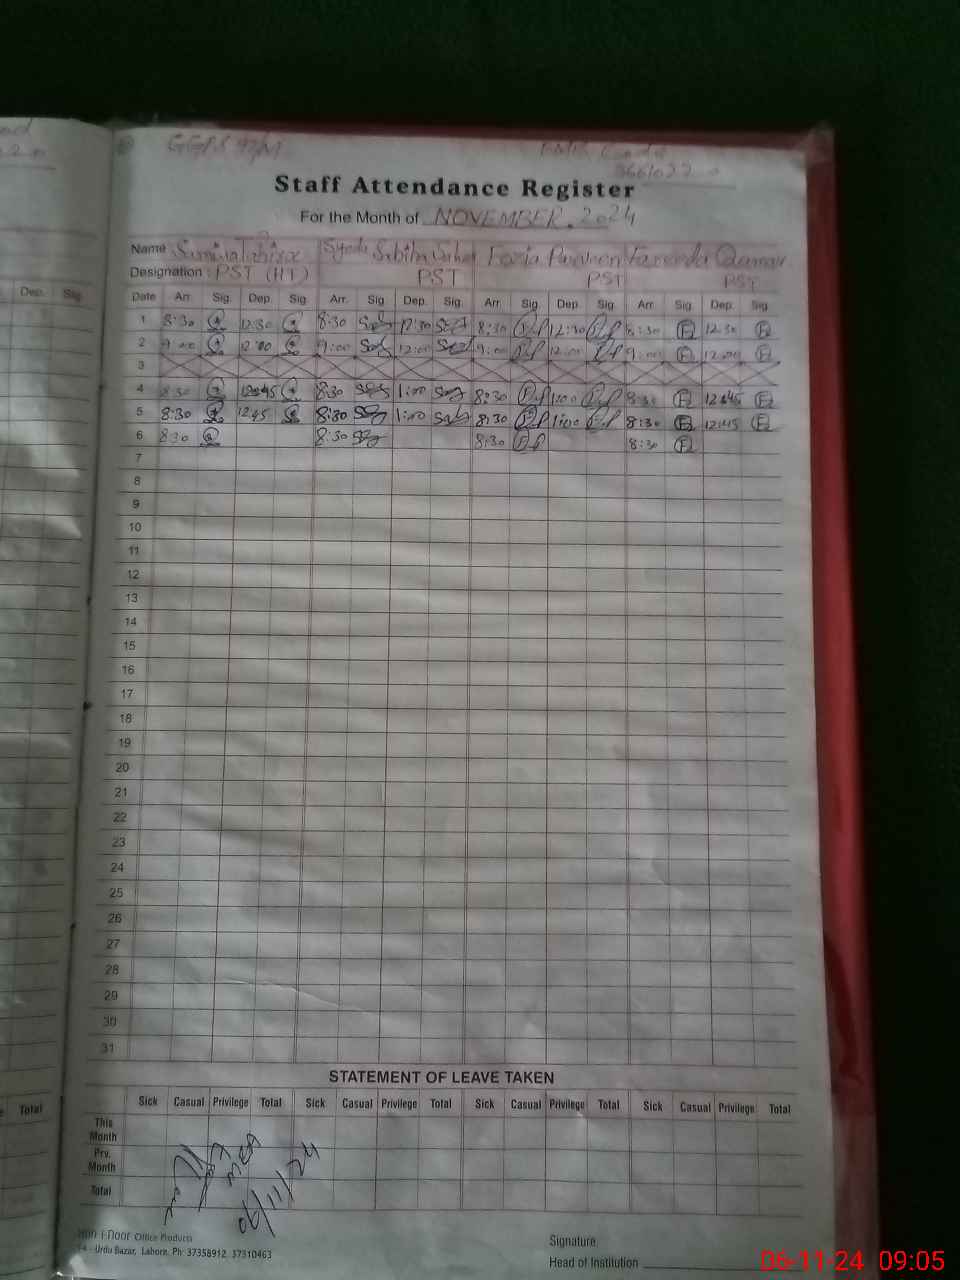 Staff Attendance Register
For the Month of NOVEMBER. 2024
Name Syeda Sabiha Fozia Parveen Fareeda
Designation : PST (HT) PST PST PST
Date Arr. Sig. Dep. Sig. Arr. Sig. Dep. Sig. Arr. Sig. Dep. Sig. Arr. Sig. Dep. Sig.
1 8:30 12:30 8:30 12:30 8:30 12:30 8:30 12:30
2 9:00 12:00 9:00 12:00 9:00 12:00 9:00 12:00
3
4 8:30 12:45 8:30 1:00 8:30 1:00 8:30 12:45
5 8:30 12:45 8:30 1:00 8:30 1:00 8:30 12:45
6 8:30 8:30 8:30 8:30
7
8
9
10
11
12
13
14
15
16
17
18
19
20
21
22
23
24
25
26
27
28
29
30
31
STATEMENT OF LEAVE TAKEN
Sick Casual Privilege Total Sick Casual Privilege Total Sick Casual Privilege Total Sick Casual Privilege Total
This Month
Prv. Month
Total
MEA
06/11/24
Office Products
Urdu Bazar, Lahore, Ph: 37358912, 37310463
Signature
Head of Institution
Dep. Sig.
Total
06-11-24 09:05